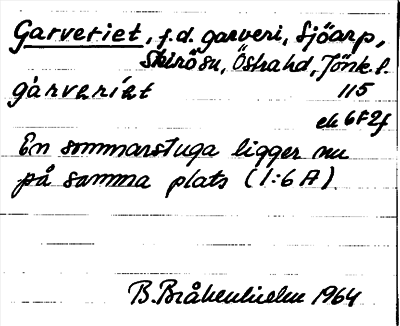 Garveriet, f.d. garveri, Sjöarp,
Skirö sn, Östra hd, Jönk.l.
gàrveríet 115
ek 6F2f
En sommarstuga ligger nu
på samma plats (1:6 A).
B. Bråkenhielm 1964